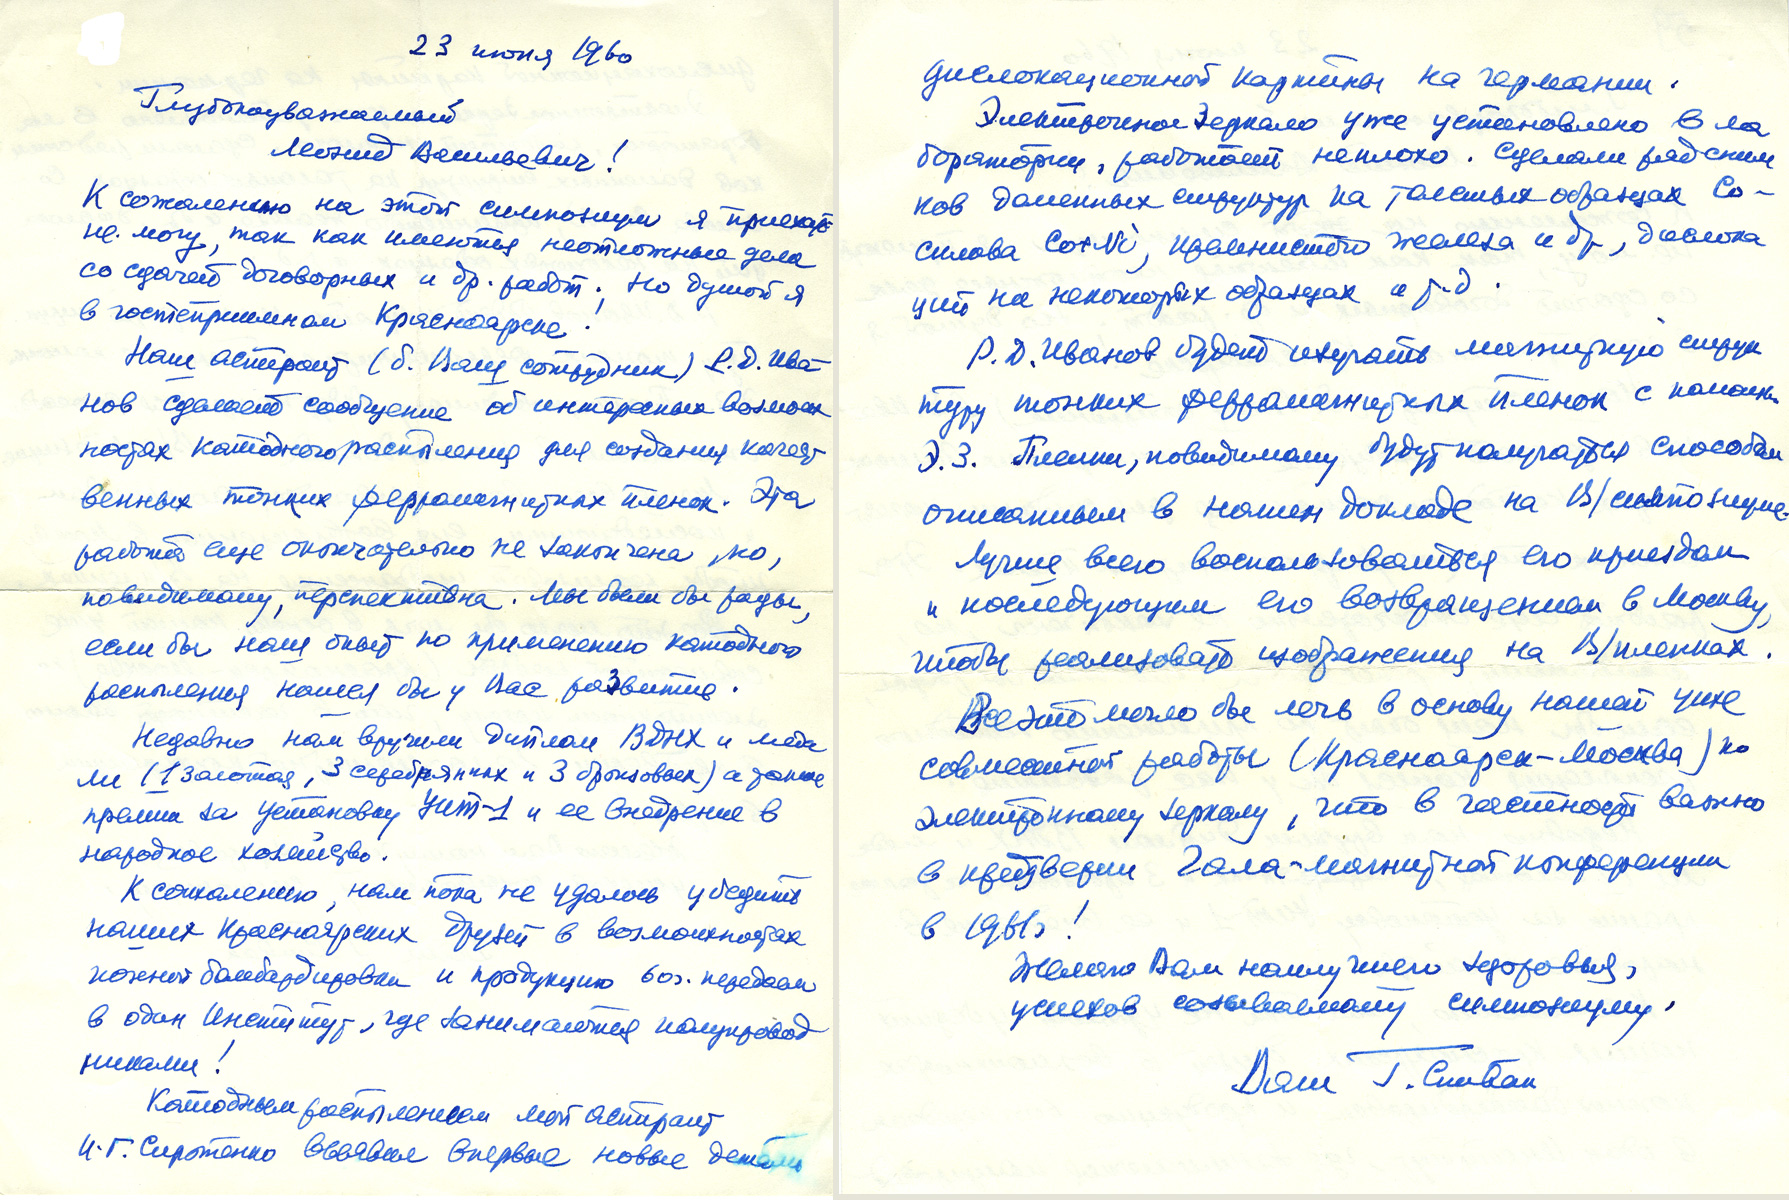 23 июня 1960
Глубокоуважаемый
Леонид Васильевич!
К сожалению на этот симпозиум я приехать
не могу, так как имеются неотложные дела
со сдачей договорных и др. работ. Но душой я
в гостеприимном Красноярске!
Наш аспирант (б. Ваш сотрудник) Р.Д. Ива-
нов сделает сообщение об интересных возмож
ностях катодного распыления для создания качест
венных тонких ферромагнитных пленок. Эта
работа еще окончательно не закончена, но,
повидимому, перспективна. Мы были бы рады,
если бы наш опыт по применению катодного
распыления нашел бы у Вас развитие.
Недавно нам вручили диплом ВДНХ и меда
ли (1 золотая, 3 серебрянных и 3 бронзовых) а также
премии за установку УИТ-1 и ее внедрение в
народное хозяйство.
К сожалению, нам пока не удалось убедить
наших Красноярских друзей в возможностях
ионной бомбардировки и продукцию 60г. передаем
в один Институт, где занимаются полупровод
никами!
Катодным распылением мой аспирант
И.Г. Сиротенко выявил впервые новые детали
дислокационной картины на германии.
Электронное зеркало уже установлено в ла
боратории, работает неплохо. Сделали ряд сним
ков доменных структур на толстых образцах Co-
сплава Co+Ni, кремнистого железа и др, дислока
ций на некоторых образцах и т.д.
Р.Д. Иванов будет изучать магнитную струк
туру тонких ферромагнитных пленок с помощью
Э.З. Пленки, повидимому будут получаться способом
описанным в нашем докладе на В/симпозиуме.
Лучше всего воспользоваться его приездом
и последующим его возвращением в Москву,
чтобы реализовать изображения на В/пленках.
Все это могло бы лечь в основу нашей уже
совместной работы (Красноярск-Москва) по
электронному зеркалу, что в частности важно
в преддверии Гала-магнитной конференции
в 1961г!
Желаю Вам наилучшего здоровья,
успехов созываемому симпозиуму.
Ваш Г. Спивак